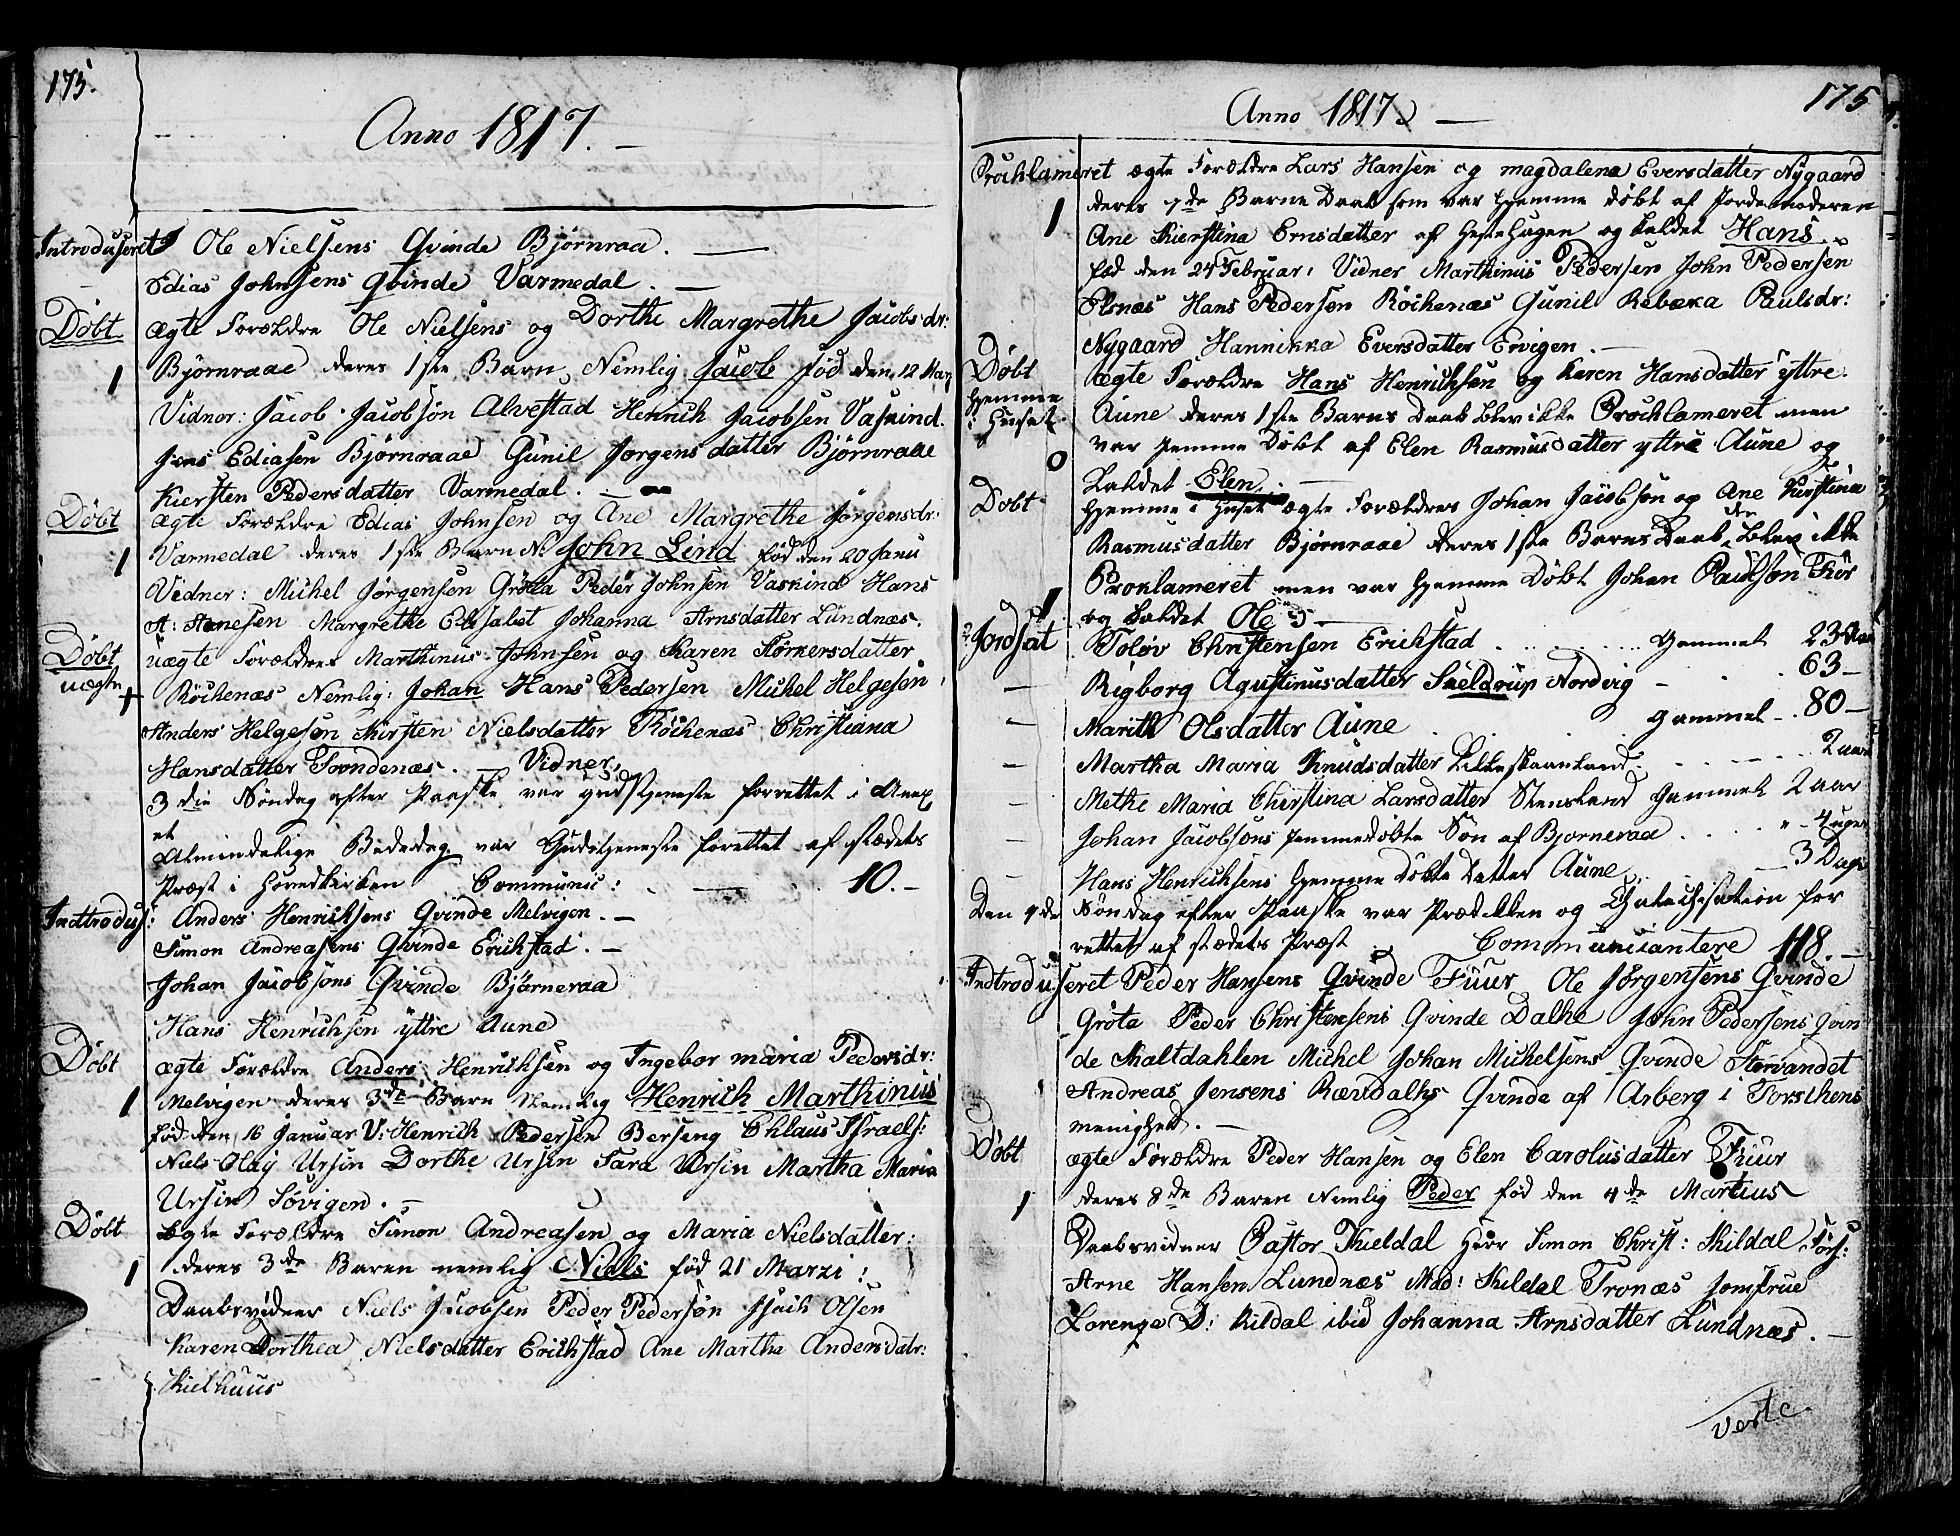 175.
Anno 1817. —
Introduseret Ole Nielsens Qvinde Bjørnraa. —
Edias Johnsens Qvinde Varmedal. —
Døbt ægte Forældre Ole Nielsens og Dorthe Margrethe Jacobsdr:
1 Bjørnraae deres 1ste Barn Nemlig Jacob fød den 12 Marz
Vidner: Jacob Jacobsøn Alvestad Henrich Jacobsen Vaskind.
Jens Ediasen Bjørnraae Gunil Jørgensdatter Bjørnraae
Kiersten Pedersdatter Varmedal. —
Døbt ægte Forældre Edias Johnsen og Ane Margrethe Jørgensdr:
1 Varmedal deres 1ste Barn N: John Lind fød den 20 Janu
Vidner: Michel Jørgensen Grøtta Peder Johnsen Vaskind Hans
A: Arnesen Margrethe Elisabet Johanna Arnsdatter Lundnæs.
Døbt uægte Forældre Marthinus Johnsen og Karen Torkersdatter
uægte + Røchenæs Nemlig: Johan Hans Pedersen Michel Helgesen
Anders Helgesøn Kirsten Nielsdatter Røchenæs Christiana
Hansdatter Trondenæs. — Vidner.
3die Søndag efter Paaske var Gudstjeneste forrettet i Anex
et
Almindelige Bededag var Gudstjeneste forettet af stædets
Præst i Hovedkirken Communic: — 10. —
Indtrodus: Anders Henrichsens Qvinde Melvigen. —
Simon Andreasens Qvinde Erichstad. —
Johan Jacobsøns Qvinde Bjørneraa
Hans Henrichsen yttre Aune
Døbt ægte Forældre Anders Henrichsen og Ingebor Maria Pedersdr:
1 Melvigen deres 3de Barn Nemlig Henrich Marthinus
fød den 16 Januar V: Henrich Pedersen Berseng Chlaus Israels:
Niels Olaj Ursin Dorthe Ursin Sara Ursin Martha Maria
Ursin Søvigen. —
Døbt Ægte Forældre Simon Andreasen og Maria Nielsdatter:
1 deres 3de Baren nemlig Niels fød 21 Marzi:
Daabsvidner Niels Jacobsen Peder Pedersøn Isach Olsen
Karen Dorthea Nielsdatter Erichstad Ane Martha Andersdatr:
Kielhuus
175
Anno 1817 —
Prochlameret ægte Forældre Lars Hansen og magdalena Eversdatter Nygaard
1 deres 7de Barne Daab som var hjemme døbt af Jordemoderen
Ane Kierstina Ernsdatter af Hestehugen og kaldet Hans.
fød den 24 Februar: Vidner Marthinus Pedersen John Pedersen
Elsnæs Hans Pedersøn Røchenæs Gunil Rebæka Paulsdr:
Nygaard Hannikka Eversdatter Ervigen. —
Døbt ægte Forældre Hans Henrichsen og Karen Hansdatter yttre
hjemme Aune deres 1ste Barns Daab blev ikke Prochlameret men
i Huset var hjemme Døbt af Elen Rasmusdatter yttre Aune og
0 kaldet Elen. —
Døbt hjemme i Huset ægte Forældres Johan Jacobsøn og Ane Kirstina
Rasmusdatter Bjørnraae deres 1ste Barns Daab blev ikke
Proklameret men var hjemme Døbt Johan Paulsøn Fuur
1 og kaldet Ole. —
Jordsat Toløv Christensen Erichstad . . . . gammel 23 Aar
— Rigborg Agustinusdatter Skeldrup Nordvig — . . 63 —
— Marith Olsdatter Aune . . . gammel . 80 —
— Martha Maria Knudsdatter Lilleskaanland . . . 2 aar
— Methe Maria Christina Larsdatter Stensland gammel 2 aar
— Johan Jacobsøns hjemmedøbte Søn af Bjorneraa . . . 4 uger
— Hans Henrichsens hjemme Døbte Datter Aune . . — 3 Dage
Den 4de Søndag efter Paaske var Prædikken og Chatechisation for
rettet af stædets Præst . Communicantere 118. —
Indtroduseret Peder Hansens Qvinde Fuur Ole Jørgensens Qvinde
Grøta Peder Christensens Qvinde Dalhe John Pedersens Qvin
de Skaltdahlen Michel Johan Michelsens Qvinde Storvandet
Andreas Jensens Rævdalhs Qvinde af Arberg i Torskens
menighed. —
Døbt ægte Forældre Peder Hansen og Elen Carolusdatter Fuur
1 deres 8de Baren Nemlig Peder fød den 4de Martius
Daabsvidner Pastor Kieldal Herr Simon Christ: Kildal Tørs:
Arne Hansen Lundnæs Mad: Kildal Tronæs Jomfrue
Lorenze D: Kildal ibid Johanna Arnsdatter Lundnæs. —
verte.